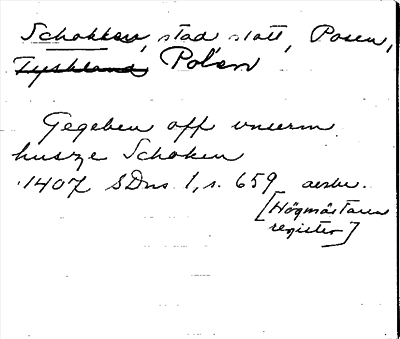 Schokken, stad slott, Posen,
Tyskland Polen
Gegeben off unserm
husze Schoken
1407 SDns 1, s. 659
[Högmästaren
register]